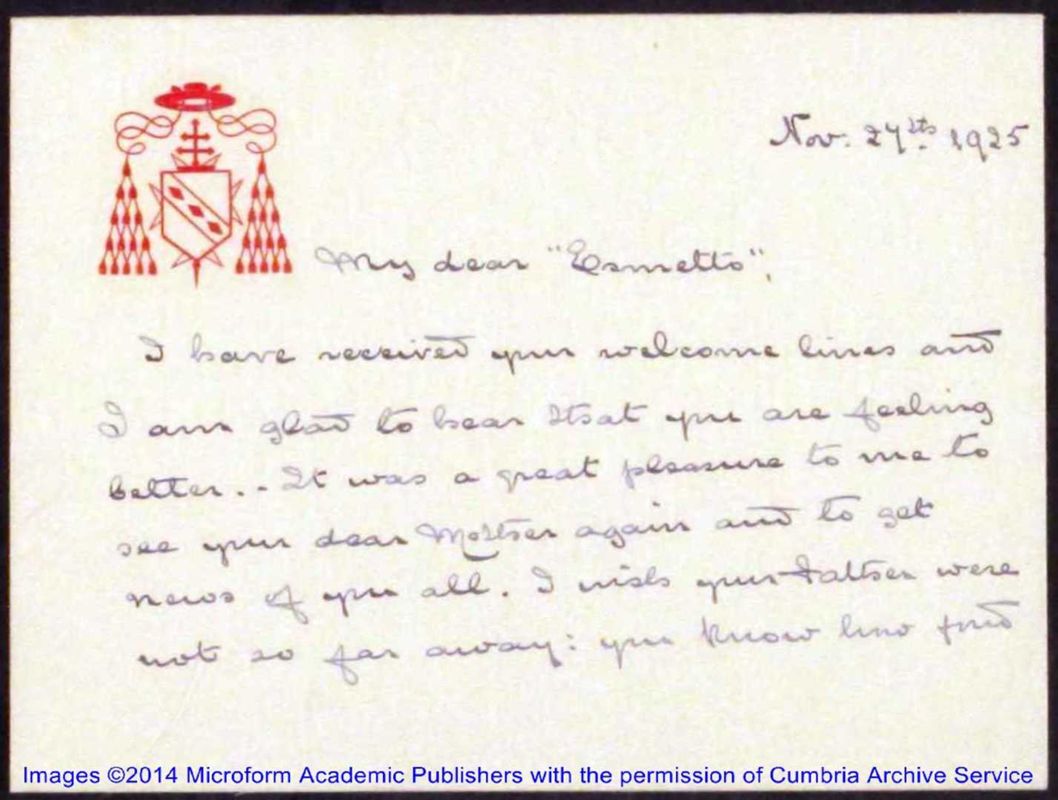 Nov. 27th 1925
My dear "Esmetto",
I have received your welcome lines and
I am glad to hear that you are feeling
better. - It was a great pleasure to me to
see your dear Mother again and to get
news of you all. I wish your Father were
not so far away: you know how fond
Images ©2014 Microform Academic Publishers with the permission of Cumbria Archive Service